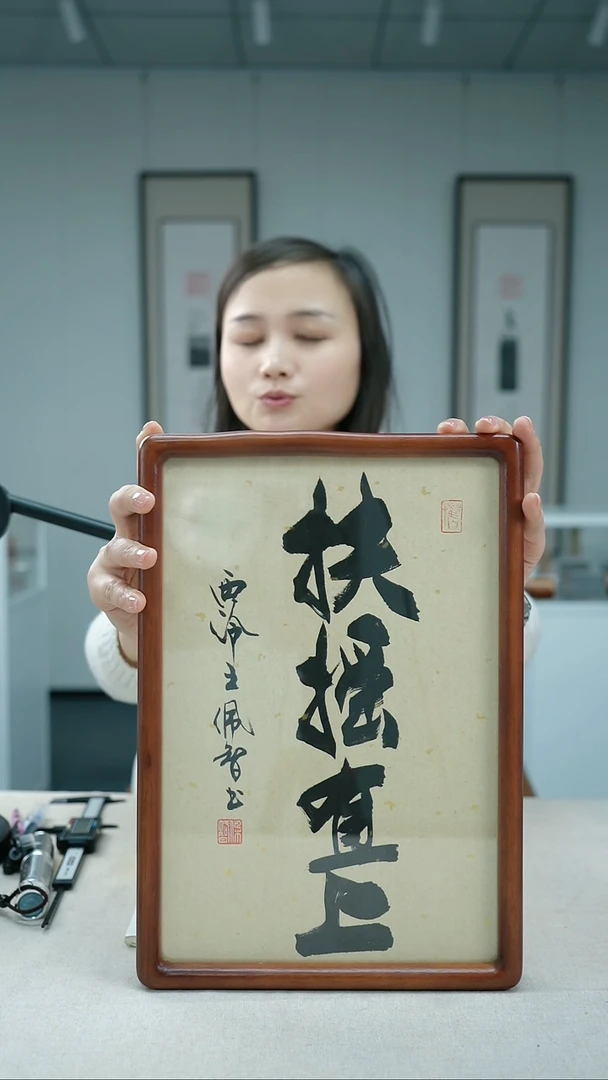 扶摇直上
西泠王佩智书